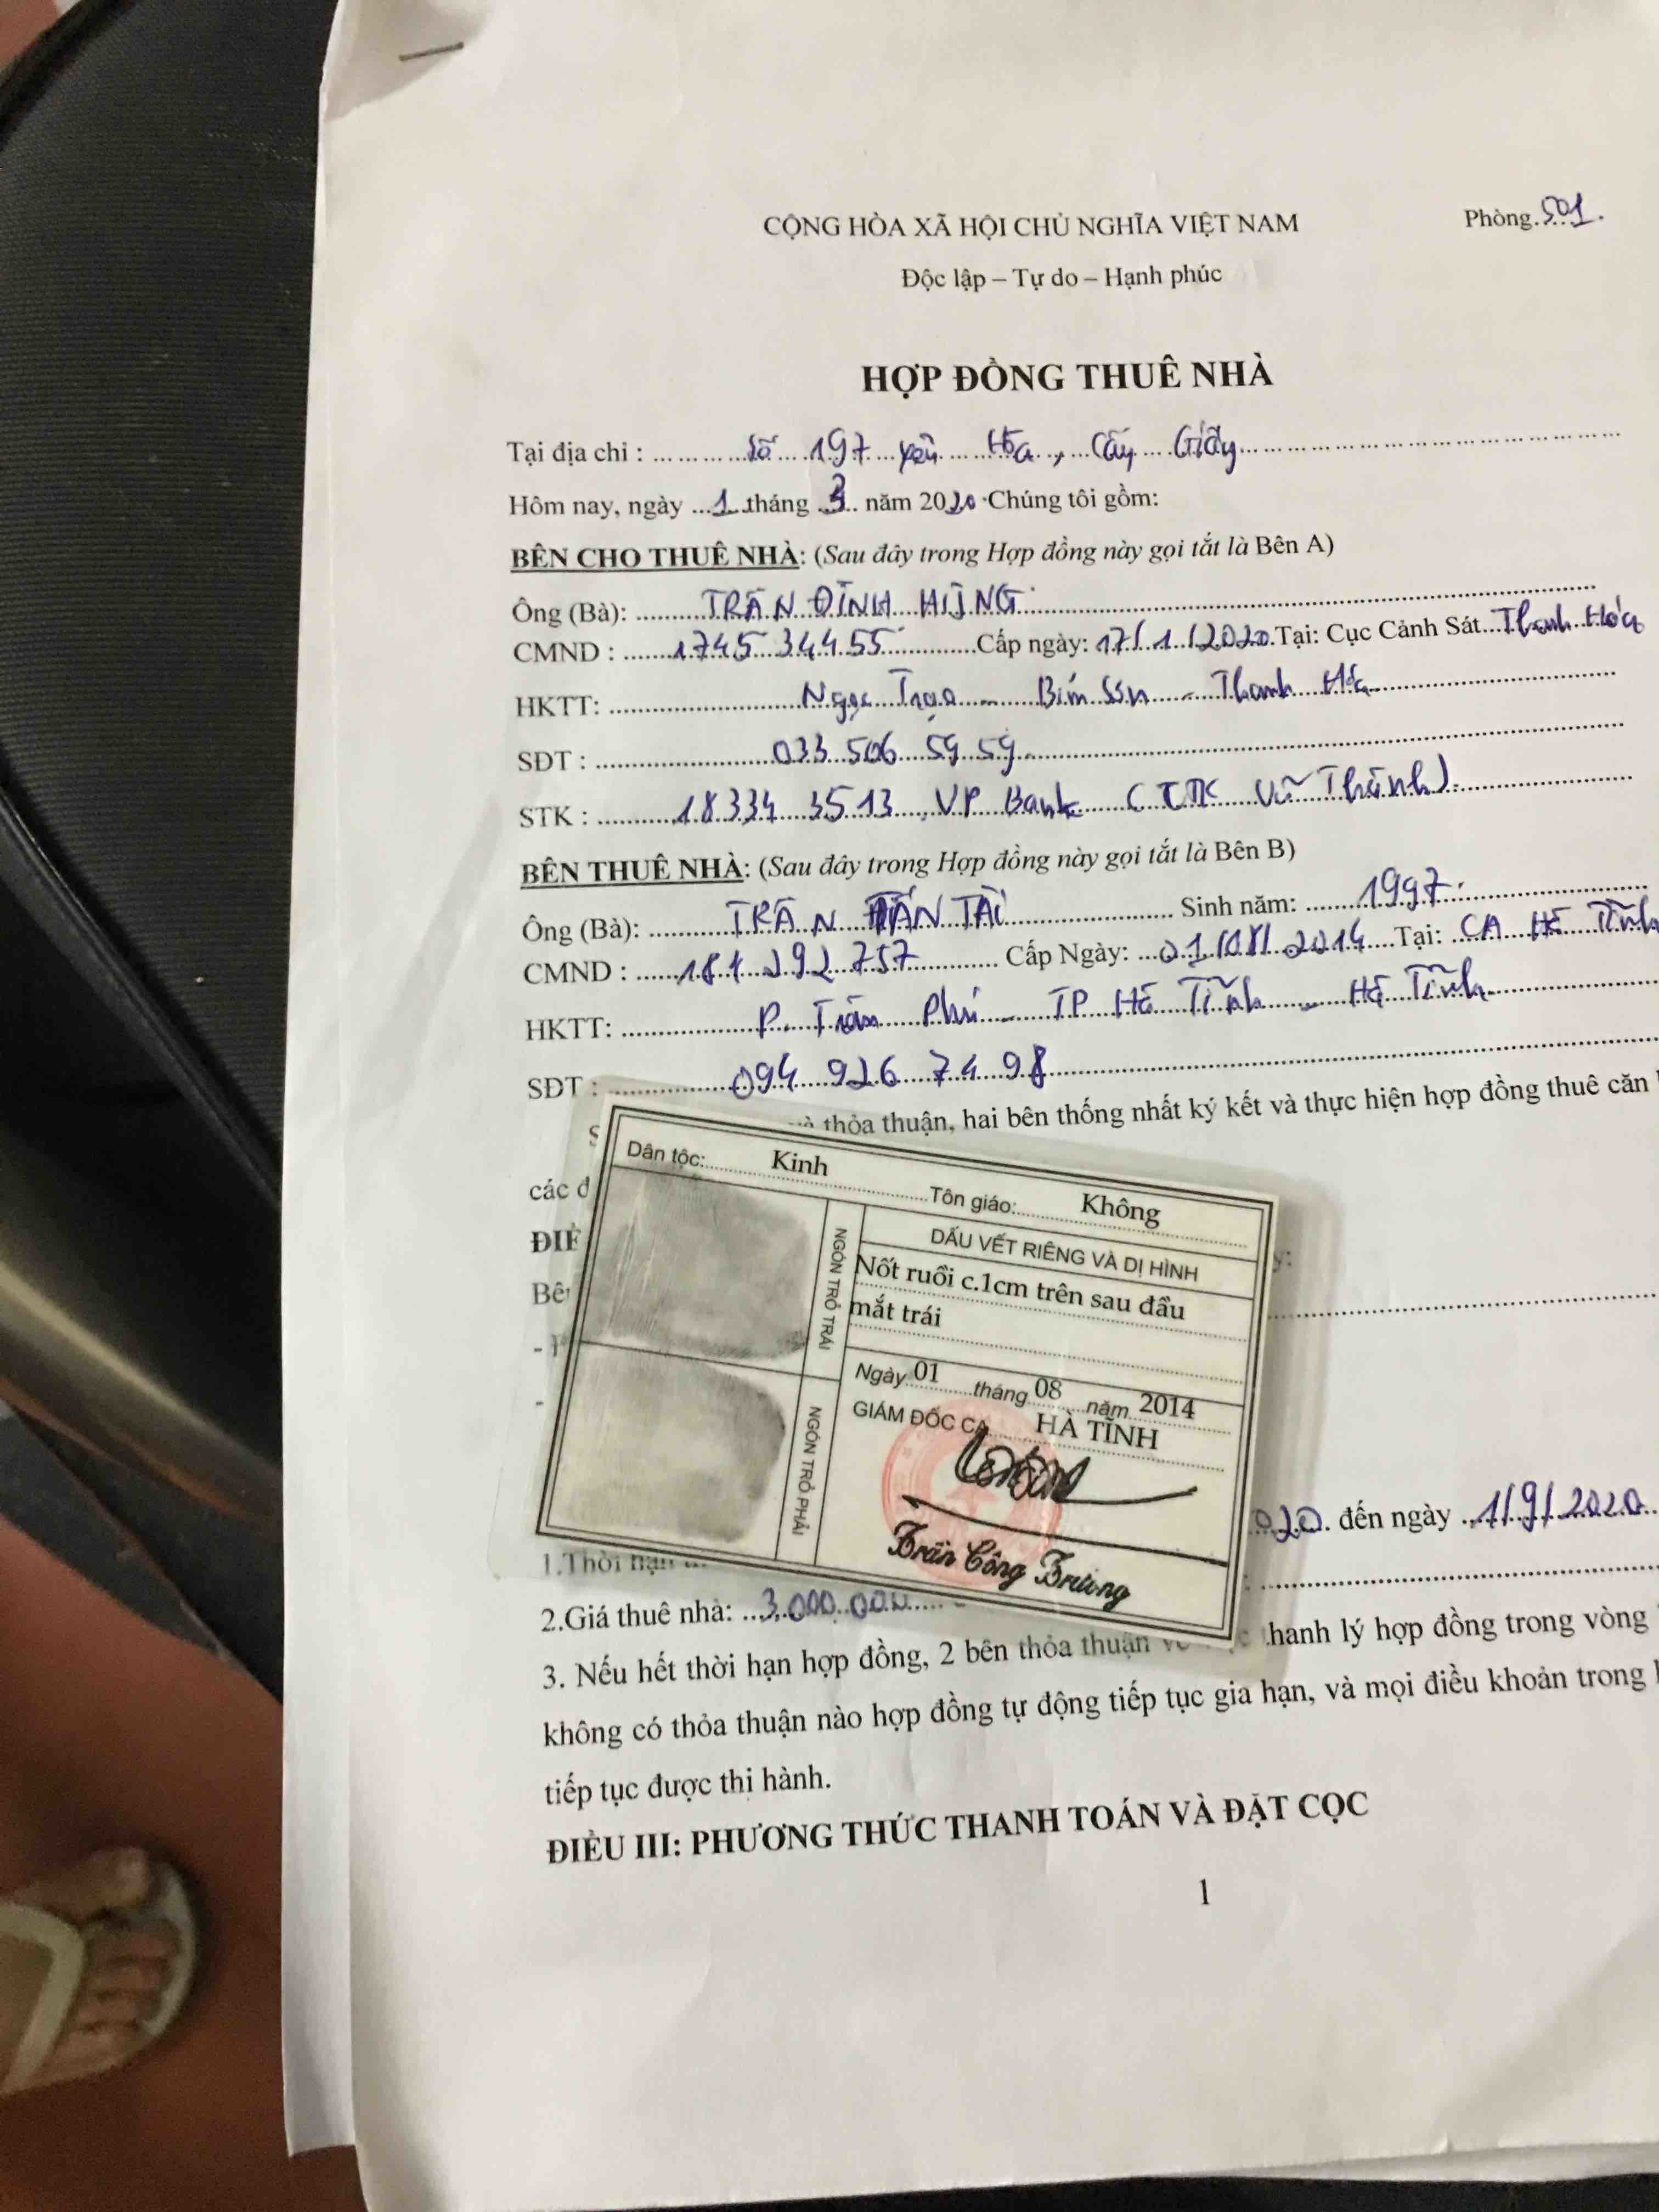 CỘNG HÒA XÃ HỘI CHỦ NGHĨA VIỆT NAM
Phòng.501.
Độc lập – Tự do – Hạnh phúc
HỢP ĐỒNG THUÊ NHÀ
Tại địa chỉ : số 197 Yên Hòa, Cầu Giấy
Hôm nay, ngày 1 tháng 3 năm 2020 Chúng tôi gồm:
BÊN CHO THUÊ NHÀ: (Sau đây trong Hợp đồng này gọi tắt là Bên A)
Ông (Bà): TRẦN ĐÌNH HÙNG
CMND : 1745 344 55 Cấp ngày: 17/1/2020 Tại: Cục Cảnh Sát Thanh Hóa
HKTT: Ngọc Trạo - Bỉm Sơn - Thanh Hóa
SĐT : 033 506 59 59
STK : 18334 3513 VP Bank (CTK Vũ Thành).
BÊN THUÊ NHÀ: (Sau đây trong Hợp đồng này gọi tắt là Bên B)
Ông (Bà): TRẦN TẤN TÀI Sinh năm: 1997
CMND : 184 292 757 Cấp Ngày: 01/08/2014 Tại: CA Hà Tĩnh
HKTT: P. Trần Phú - TP Hà Tĩnh - Hà Tĩnh
SĐT : 094 926 74 98
thỏa thuận, hai bên thống nhất ký kết và thực hiện hợp đồng thuê căn
các đ
ĐIỀ
Bê
Dân tộc: Kinh
Tôn giáo: Không
DẤU VẾT RIÊNG VÀ DỊ HÌNH
Nốt ruồi c.1cm trên sau đầu
mắt trái
NGÓN TRỎ TRÁI
NGÓN TRỎ PHẢI
Ngày 01 tháng 08 năm 2014
GIÁM ĐỐC CA HÀ TĨNH
Trần Công Trường
1.Thời hạn
020 đến ngày 1/9/2020
2.Giá thuê nhà: 3.000.000
3. Nếu hết thời hạn hợp đồng, 2 bên thỏa thuận thanh lý hợp đồng trong vòng
không có thỏa thuận nào hợp đồng tự động tiếp tục gia hạn, và mọi điều khoản trong
tiếp tục được thi hành.
ĐIỀU III: PHƯƠNG THỨC THANH TOÁN VÀ ĐẶT CỌC
1